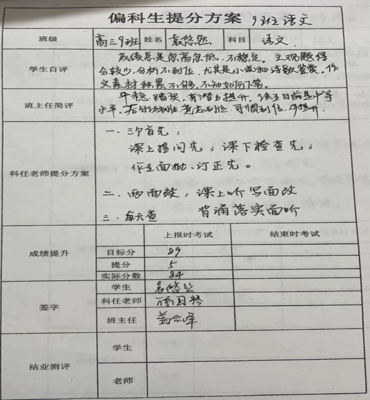 偏科生提分方案 9班语文
班级 高三9班 姓名 袁悠然 科目 语文
学生自评
成绩总是忽高忽低,不稳定。主观题得
分较少,分析不到位,尤其是小说和诗歌鉴赏。作
文素材积累不够,不知如何下笔。
班主任简评
平稳踏实,有潜力提升,
水平。
科任老师提分方案
一、三个首先:
课上提问先;课下检查先;
作业面批、订正先。
二、两面改,课上听写面改
三、每天查 背诵落实面听
成绩提升 上报时考试 结束时考试
目标分 89
提分 5
实际分数 84
签字
学生 袁悠然
科任老师
班主任
结业测评
学生
老师